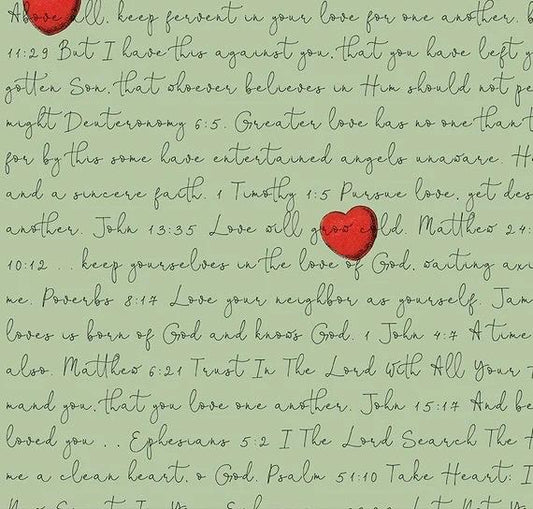 Above all, keep fervent in your love for one another, b
11:29 But I have this against you, that you have left y
gotten Son, that whoever believes in Him should not pe
might Deuteronomy 6:5. Greater love has no one than t
for by this some have entertained angels unaware. H
and a sincere faith. 1 Timothy 1:5 Pursue love, yet des
another. John 13:35 Love will grow cold. Matthew 24:
10:12 .. keep yourselves in the love of God, waiting anxi
me. Poverbs 8:17 Love your neighbor as yourself. Jam
loves is born of God and knows God. 1 John 4:7 A time
also. Matthew 6:21 Trust In The Lord With All Your
mand you, that you love one another. John 15:17 And be
loved you .. Ephesians 5:2 I The Lord Search The
me a clean heart, o God. Psalm 51:10 Take Heart; I